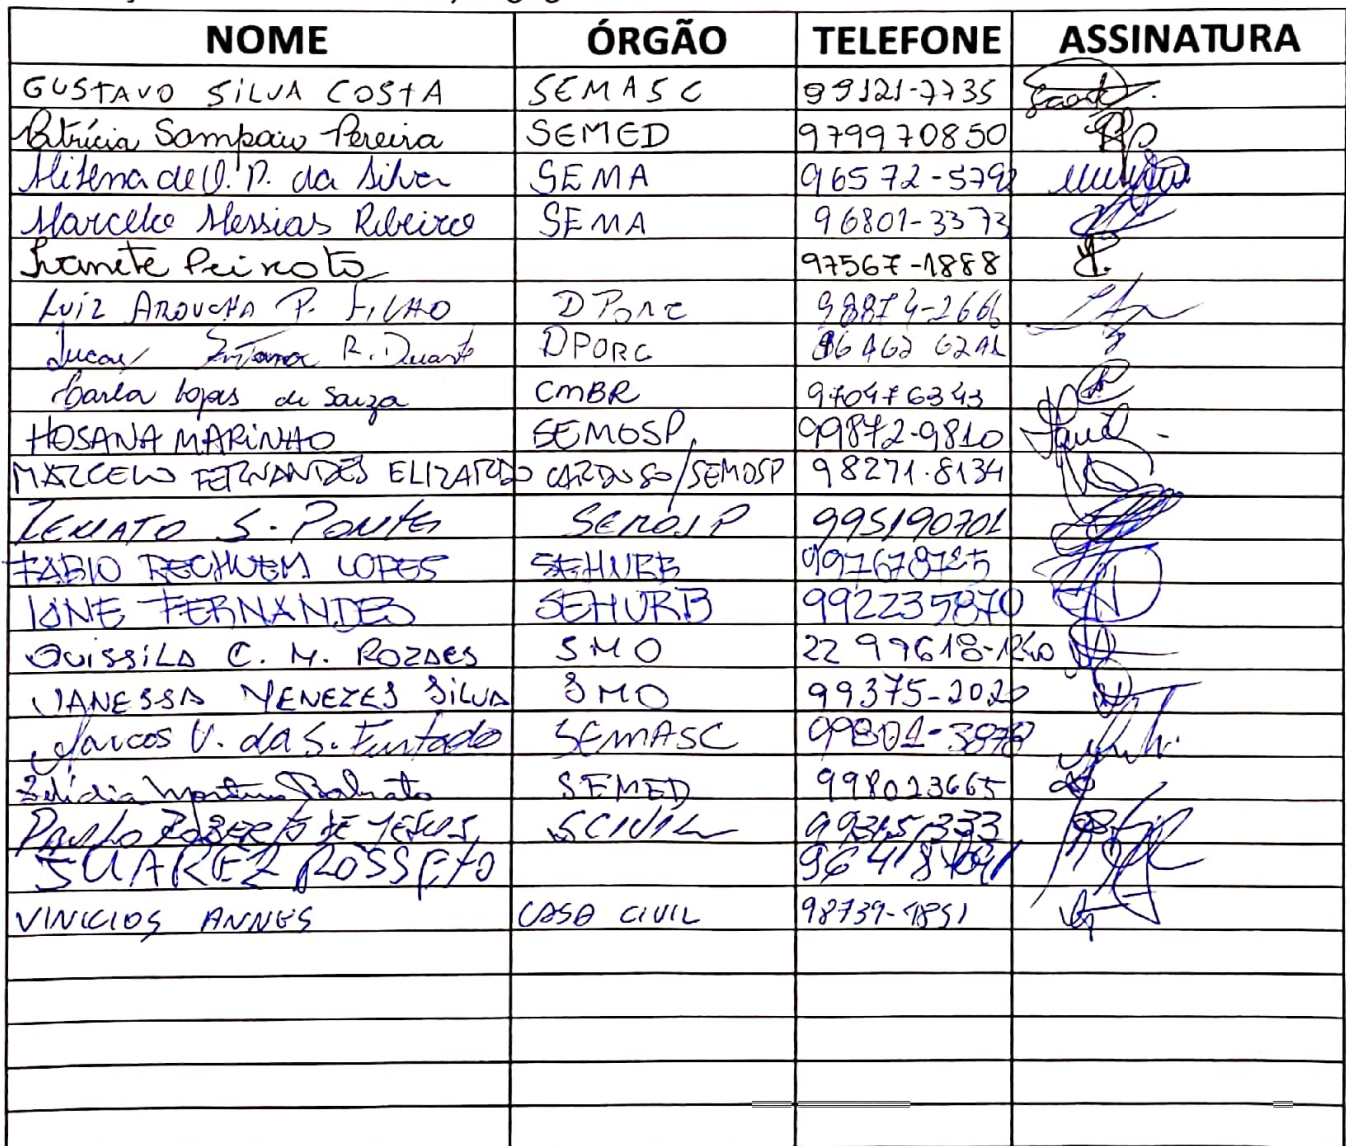 NOME ÓRGÃO TELEFONE ASSINATURA
GUSTAVO SILVA COSTA SEMASC 99121-7735
Patrícia Sampaio Pereira SEMED 979970850
Milena de O. P. da Silva SEMA 96572-5792
Marcello Messias Ribeiro SEMA 96801-3373
Ivanete Peixoto 97567-1888
LUIZ AROUCHA P. FILHO DPORC 98874-2666
Lucas R. Duarte DPORC 96462 6241
Carla Lopes de Souza CMBR 970476343
HOSANA MARINHO SEMOSP 99872-9810
MARCELO FERNANDES ELIZARDO CARDOSO/SEMOSP 98271.8134
RENATO S. PONTES SEMOSP 995190701
FABIO RECHUEM LOPES SEHURB
IONE FERNANDES SEHURB 992235870
QUISSILA C. M. ROZAES SMO 22 99618-1240
VANESSA MENEZES SILVA SMO 99375-2020
Marcos V. da S. Furtado SEMASC 99801-3878
SEMED 998023665
PAULO ROBERTO DE JESUS SCIVIL
SUAREZ ROSSETO
VINICIOS ANNES CASA CIVIL 98739-1851